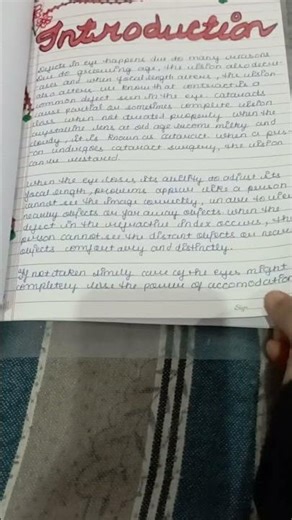 Introduction
Defects in eye happens due to many reasons
due to growing age, the vision also decre-
ases and when focal length alters, the vision
also alters. we know that contract is a
common defect seen in the eye. cataracts
cause partial or sometimes complete vision
loss when not treated properly. when the
crystalline lens at old age become milky and
cloudy, it is known as cataract. when a pers-
on undergoes cataract surgery, the vision
can be restored.
when the eye loses its ability to adjust its
focal length, problems appear like a person
cannot see the image correctly, unable to view
nearby objects or far away objects. when the
defect in the refractive index occurs, the
person cannot see the distant objects or near
objects comfortably and distinctly.
If not taken timely care of the eyes might
completely lose the power of accomodation